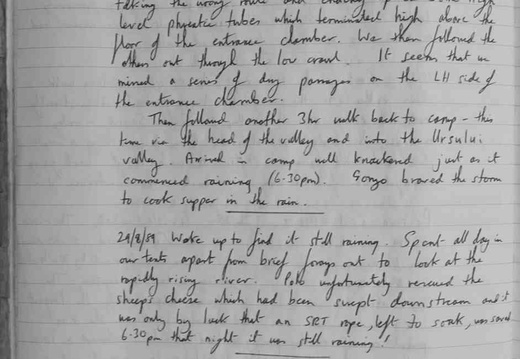 taking the wrong route and
level phreatic tubes which terminated high above the
floor of the entrance chamber. We then followed the
others out through the low crawl. It seems that we
missed a series of dry passages on the LH side of
the entrance chamber.
Then followed another 3hr walk back to camp - this
time via the head of the valley and into the Ursului
valley. Arrived in camp well knackered just as it
commenced raining (6.30pm). Gonzo braved the storm
to cook supper in the rain.
29/8/89 Woke up to find it still raining. Spent all day in
our tents apart from brief forays out to look at the
rapidly rising river. Pete unfortunately rescued the
sheeps cheese which had been swept downstream and it
was only by luck that an SRT rope, left to soak, was saved
6.30pm that night it was still raining!